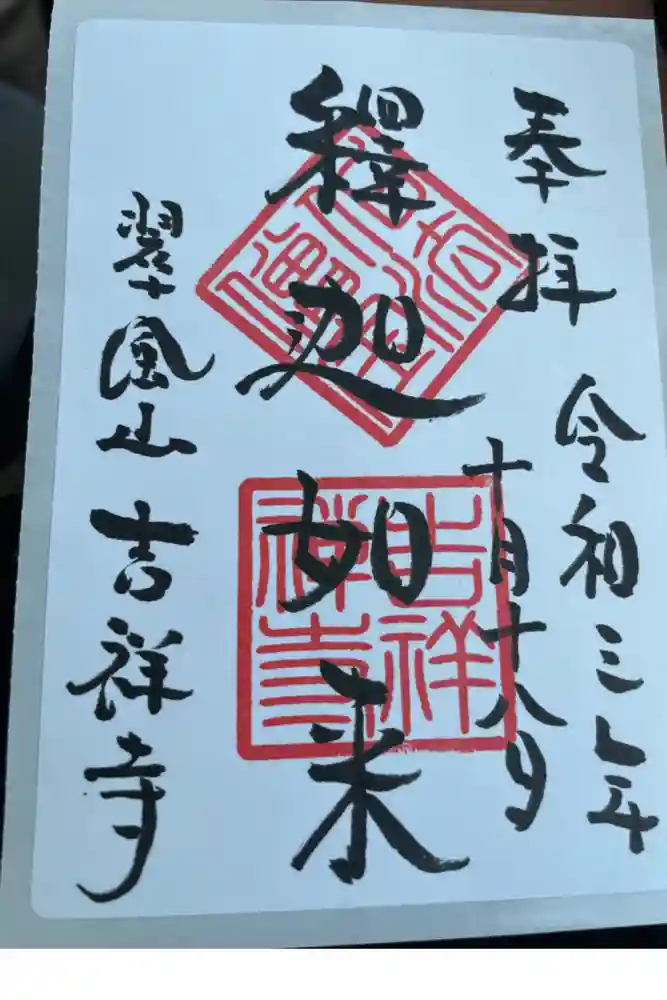 奉拝 令和三年
十月十八日
釋迦如来
翠風山 吉祥寺
吉祥
禅寺